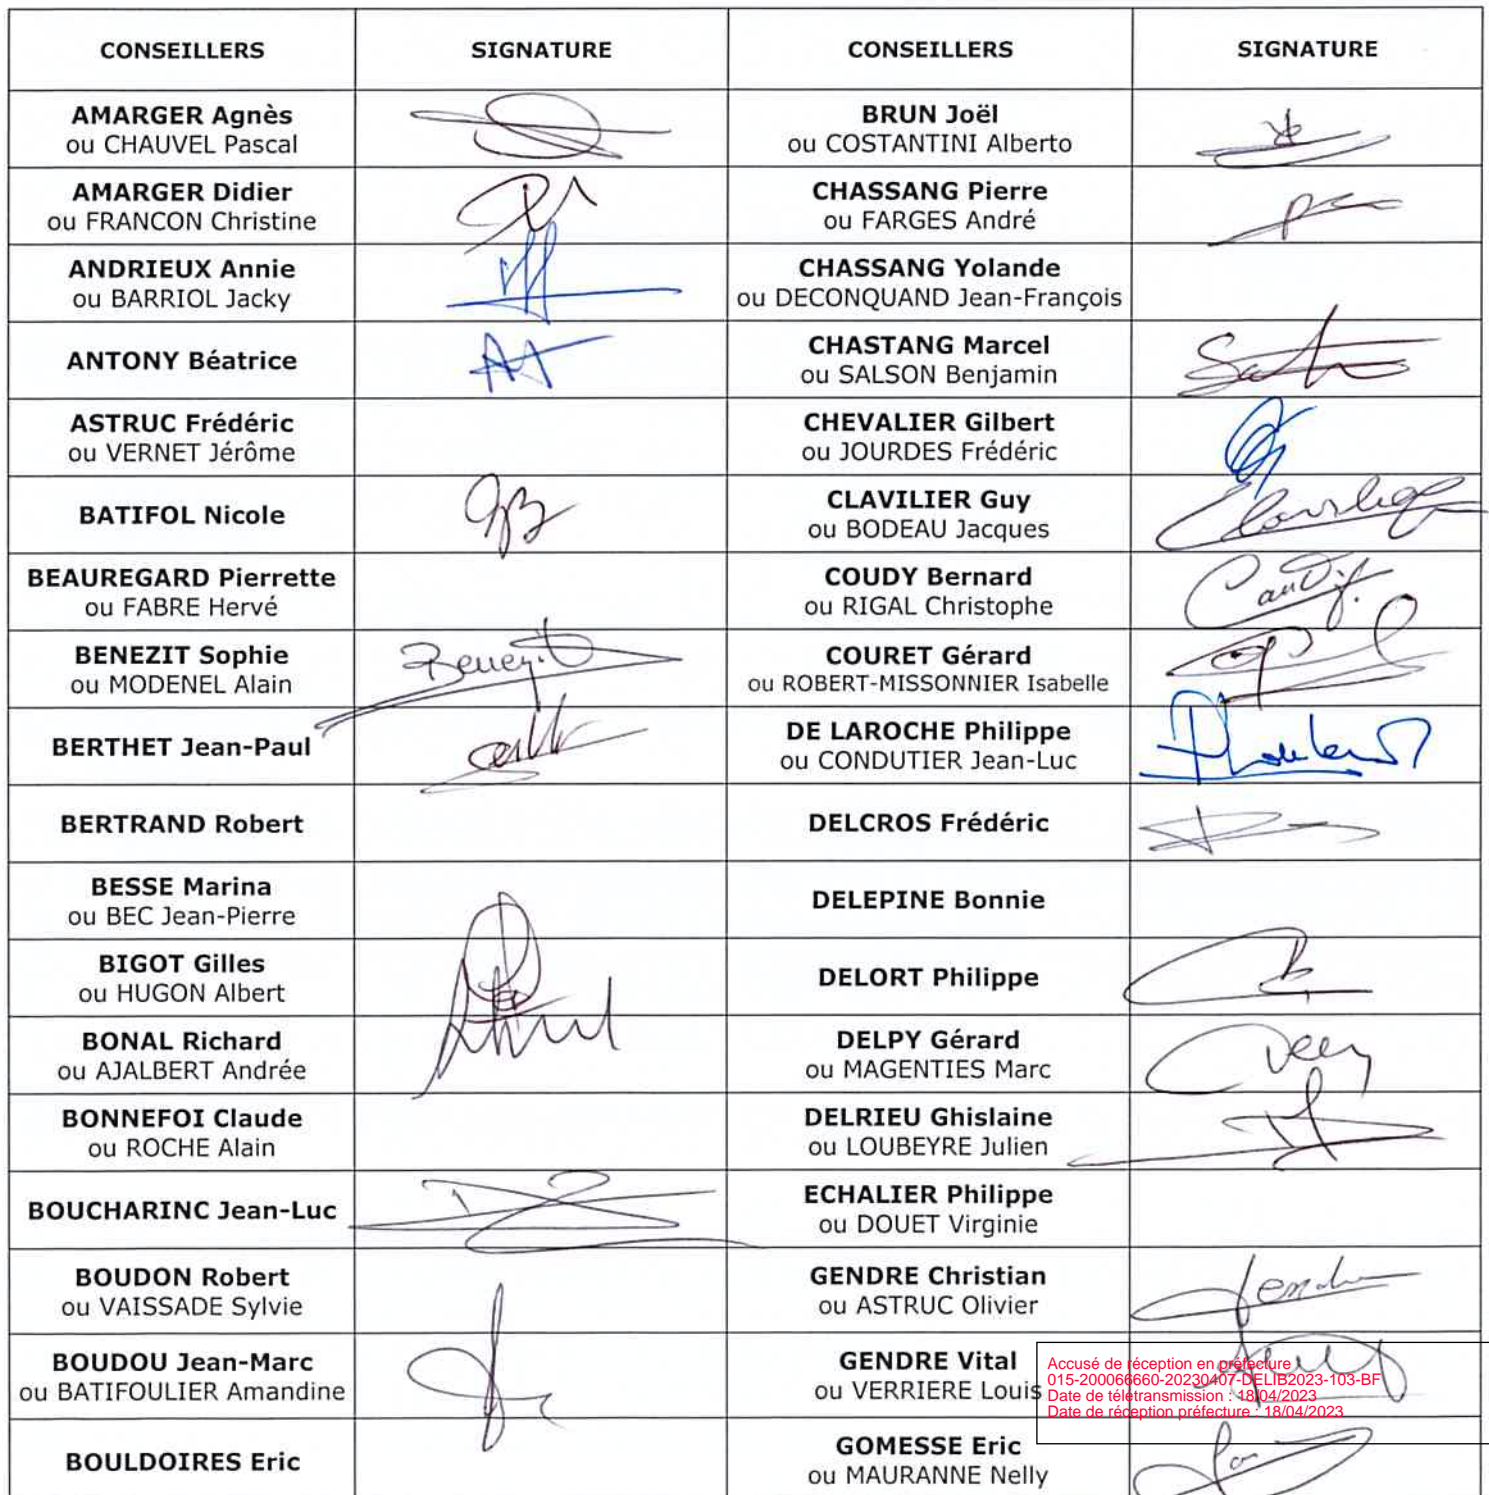 CONSEILLERS SIGNATURE CONSEILLERS SIGNATURE
AMARGER Agnès
ou CHAUVEL Pascal
BRUN Joël
ou COSTANTINI Alberto
AMARGER Didier
ou FRANCON Christine
CHASSANG Pierre
ou FARGES André
ANDRIEUX Annie
ou BARRIOL Jacky
CHASSANG Yolande
ou DECONQUAND Jean-François
ANTONY Béatrice
CHASTANG Marcel
ou SALSON Benjamin
ASTRUC Frédéric
ou VERNET Jérôme
CHEVALIER Gilbert
ou JOURDES Frédéric
BATIFOL Nicole
CLAVILIER Guy
ou BODEAU Jacques
BEAUREGARD Pierrette
ou FABRE Hervé
COUDY Bernard
ou RIGAL Christophe
BENEZIT Sophie
ou MODENEL Alain
Benezit
COURET Gérard
ou ROBERT-MISSONNIER Isabelle
BERTHET Jean-Paul
DE LAROCHE Philippe
ou CONDUTIER Jean-Luc
BERTRAND Robert
DELCROS Frédéric
BESSE Marina
ou BEC Jean-Pierre
DELEPINE Bonnie
BIGOT Gilles
ou HUGON Albert
DELORT Philippe
BONAL Richard
ou AJALBERT Andrée
DELPY Gérard
ou MAGENTIES Marc
BONNEFOI Claude
ou ROCHE Alain
DELRIEU Ghislaine
ou LOUBEYRE Julien
BOUCHARINC Jean-Luc
ECHALIER Philippe
ou DOUET Virginie
BOUDON Robert
ou VAISSADE Sylvie
GENDRE Christian
ou ASTRUC Olivier
BOUDOU Jean-Marc
ou BATIFOULIER Amandine
GENDRE Vital
ou VERRIERE Louis
Accusé de réception en préfecture
015-200066660-20230407-DELIB2023-103-BF
Date de télétransmission : 18/04/2023
Date de réception préfecture : 18/04/2023
BOULDOIRES Eric
GOMESSE Eric
ou MAURANNE Nelly